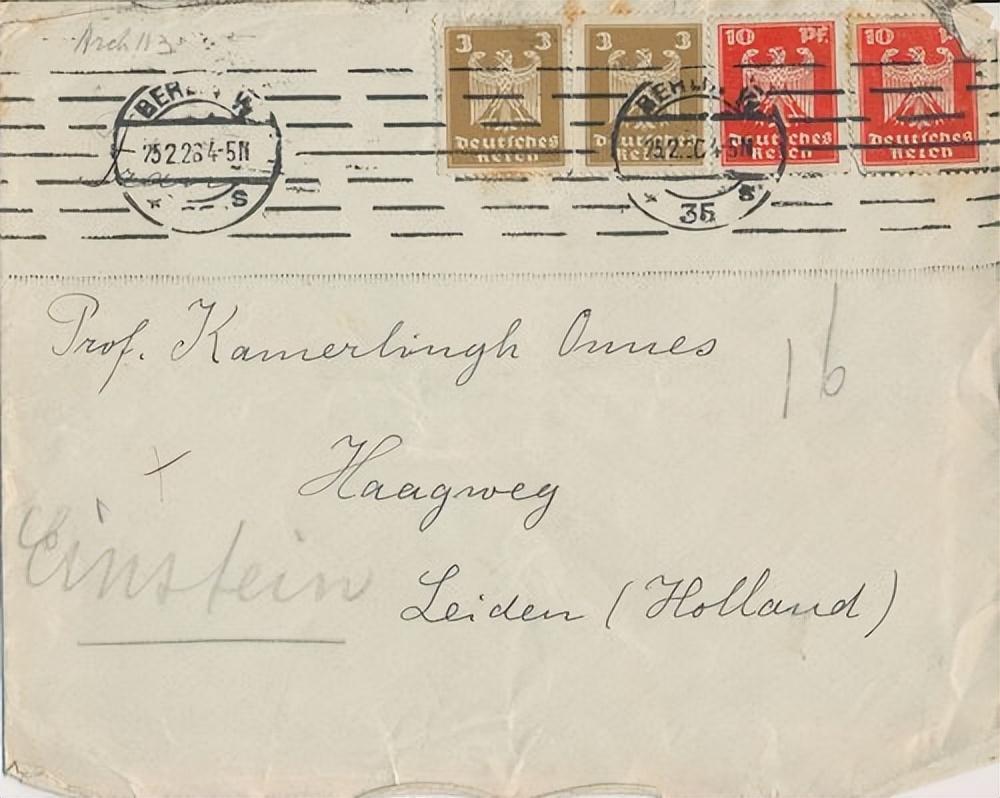 Arch 113
3 3 3 3 10 Pf. 10
Deutsches Reich Deutsches Reich Deutsches Reich Deutsches Reich
BERLIN W
25.2.26 4-5N
S
BERLIN W
25.2.26 4-5N
S
35
Prof. Kamerlingh Onnes
16
Haagweg
Einstein
Leiden (Holland)